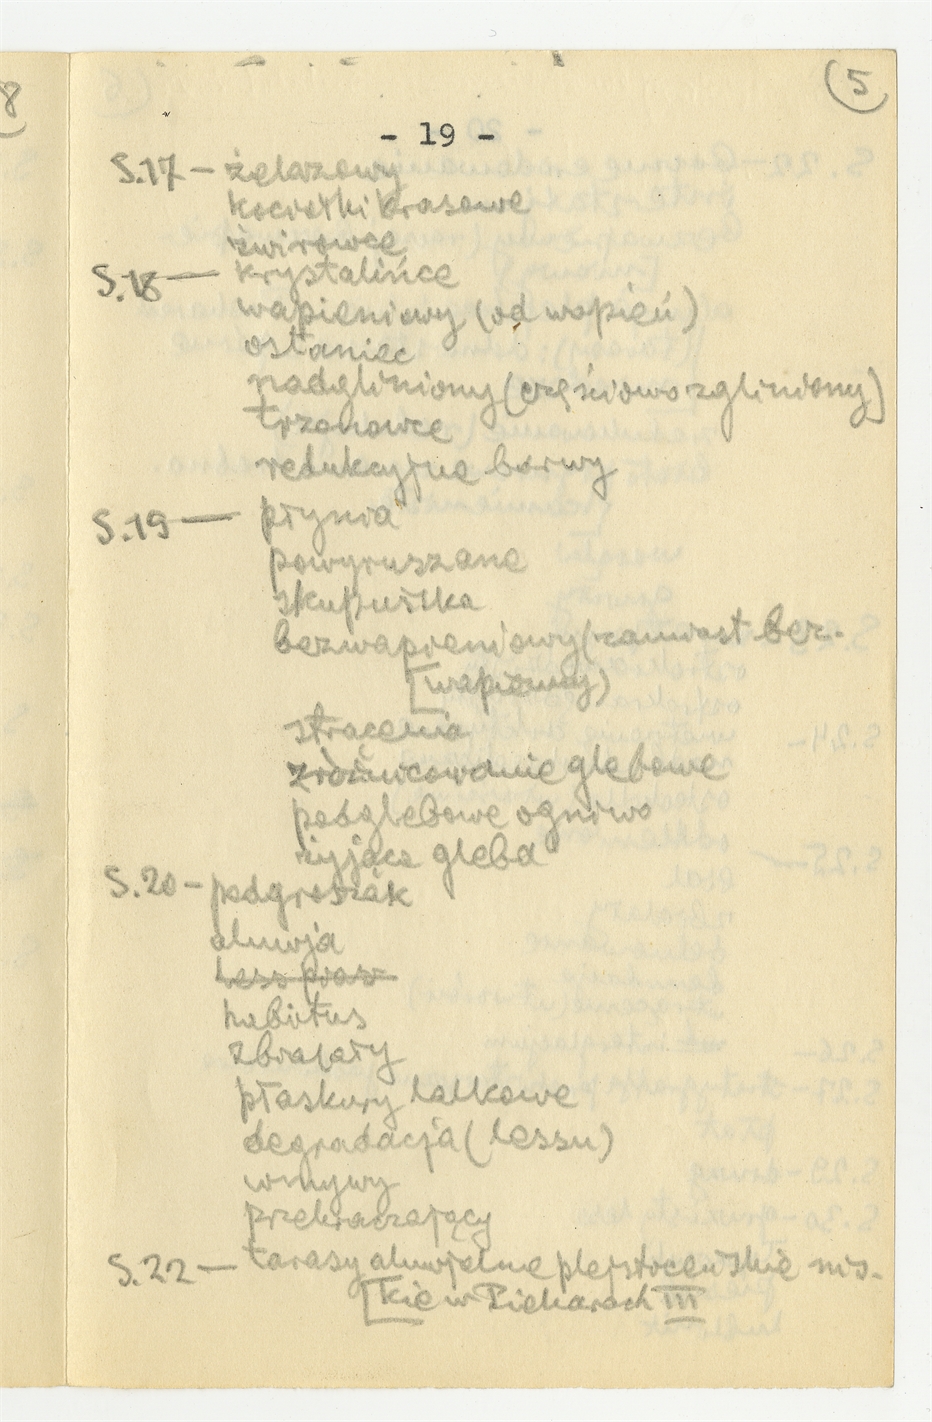 8
5
- 19 -
S.17 — żelazowy
kociołki krasowe
żwirowce
S.18 — krystalińce
wapieniowy (od wapień)
ostaniec
nadgliniony (częściowo zgliniony)
trzonowce
redukcyjne barwy
S.19 — płynia
powyruszane
skupiułka
bezwapieniowy (zamiast bez-
[wapienny)
strącenia
zróżnicowanie glebowe
podglebowe ogniwo
żyjąca gleba
S.20 — podgruszak
aluwja
habitus
płaskury lalkowe
degradacja (lessu)
wmywy
przekraczający
S.22 — tarasy aluwjalne plejstoceńskie nis-
[kie w Piekarach III